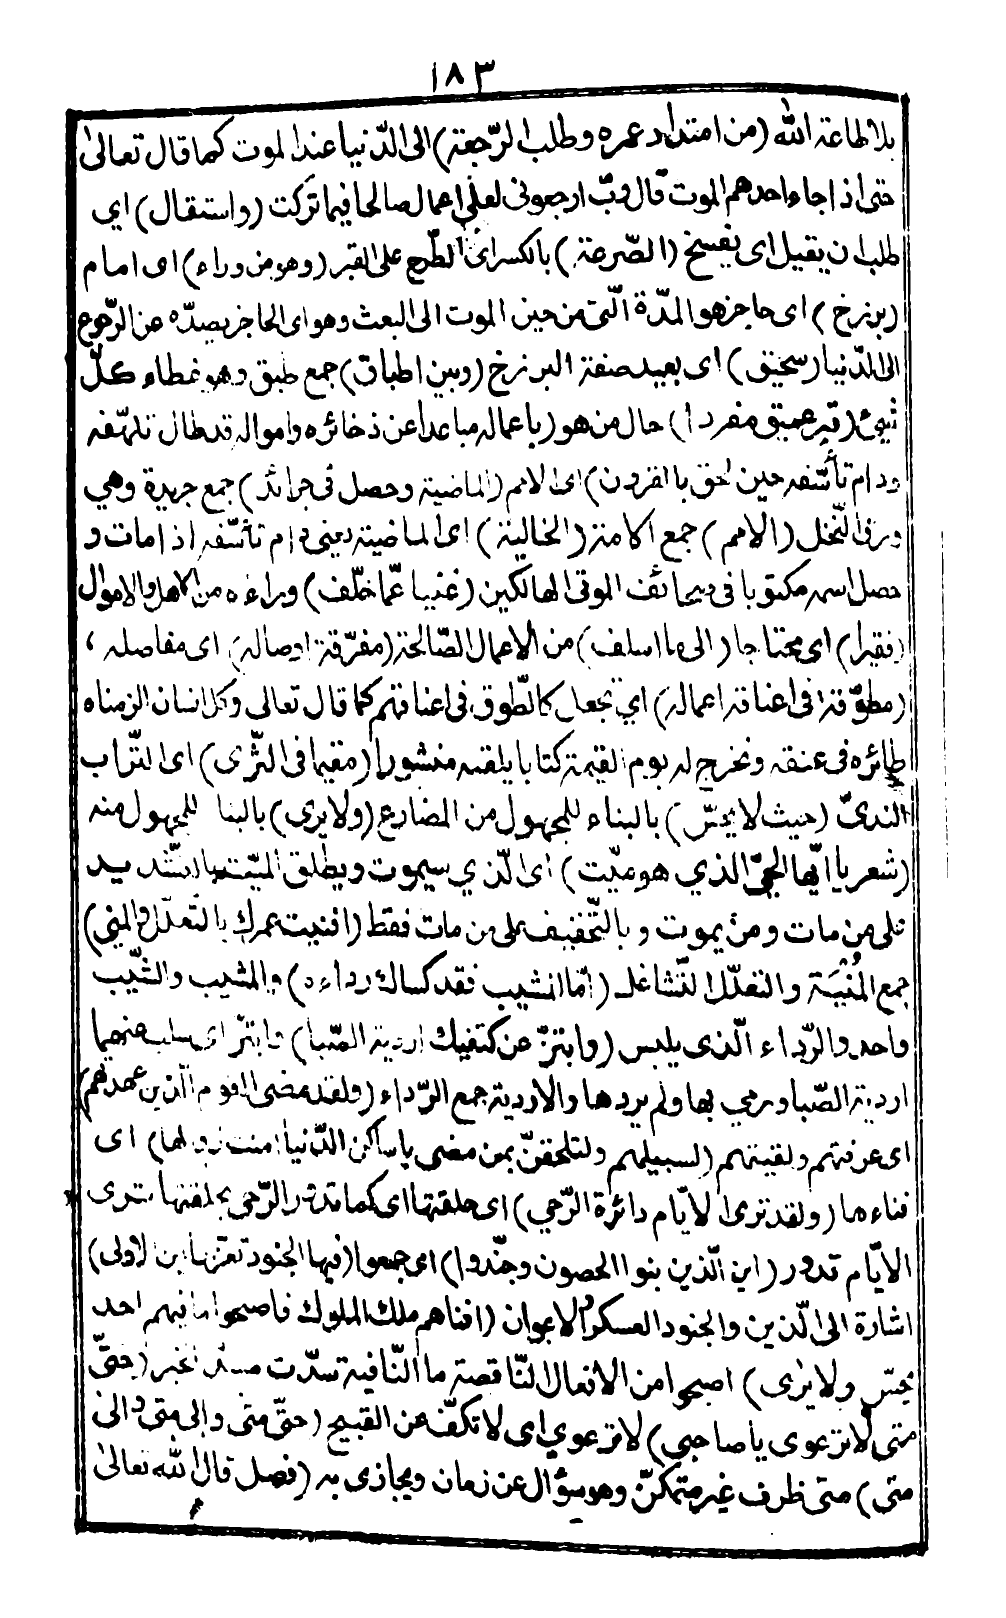 ١٨٣
بلا طاعة الله (من امتداد عمره وطلب الرّجعة) الى الدّنيا عند الموت كما قال تعالى
حتى اذا جاء احدهم الموت قال ربّ ارجعونى لعلى اعمل صالحا فيما تركت (واستقال) اي
طلب ان يقيل اى يفسخ (الصّرعة) بالكسر اى الطّرح على القبر (وهو من وراء) اى امام
(برزخ) اى حاجز هو المدّة الّتى من حين الموت الى البعث وهو اى الحاجز يصدّه عن الرّجوع
الى الدّنيا (سحيق) اى بعيد صفة البرزخ (وبين اطباق) جمع طبق وهو غطاء كلّ
شيئ (قبر عميق مفردا) حال من هو (باعماله مباعدا عن ذخائره وامواله قد طال تلهّفه
ودام تأسّفه حين لحق بالقرون) اى الامم (الماضية وحصل فى جرائد) جمع جريدة وهي
ورق النّخل (الامم) جمع الامة (الخالية) اى الماضية يعنى دام تأسّفه اذا مات و
حصل اسمه مكتوبا فى صحائف الموتى الهالكين (غنيا عمّا خلّف) وراءه من الاهل والاموال
(فقيرا) اى محتاجا (الى ما اسلف) من الاعمال الصّالحة (مفرّقة اوصاله) اى مفاصله ،
(مطوّقة فى اعناقه اعماله) اي تجعل كالطّوق فى اعناقهم كما قال تعالى وكل انسان الزمناه
طائره فى عنقه ونخرج له يوم القيمة كتابا يلقيه منشورا (مقيما فى الثّرى) اى التّراب
الندىّ (حيث لا يحسّ) بالبناء للمجهول من المضارع (ولا يرى) بالبنا للمجهول منه
(شعر يا ايّها الحىّ الذي هو ميّت) اى الّذي سيموت ويطلق الميّت بالتشديد
على من مات ومن يموت وبالتّخفيف على من مات فقط (افنيت عمرك بالتّعلّل والمنى)
جمع المُنْيَة والتعلّل التّشاغل (امّا المشيب فقد كساك رداءه) والمشيب والشّيب
واحد والرّداء الّذى يلبس (وابتزّ عن كتفيك اردية الصّبا) وابتزّ اى سلب عنهما
اردية الصّبا ورمي بها ولم يردها والاردية جمع الرّداء (ولقد مضى القوم الّذين عهدتهم)
اى عرفتهم ولقيتهم (لسبيلهم ولتلحقنّ بمن مضى يا ساكن الدّنيا امنت زوالها) اى
فناءها (ولقد ترى الايّام دائرة الرّحي) اى حلقتها اى كما تدور الرّحى بحلقتها ترى
الايّام تدور (اين الّذين بنوا الحصون وجنّدوا) اى جمعوا (فيها الجنود تعزّزا اين الاولى)
اشارة الى الّذين والجنود العسكر والاعوان (افناهم ملك الملوك فاصبحوا ما فيهم احد
يحسّ ولا يرى) اصبحوا من الافعال النّاقصة ما النّافية سدّت مسدّ الخبر (حتّى
متى لا ترعوى يا صاحبي) لا ترعوي اى لا تكفّ عن القبيح (حتّى متى والى متى والى
متى) متى ظرف غير متمكنّ وهو سؤال عن زمان ويجازى به (فصل قال الله تعالى